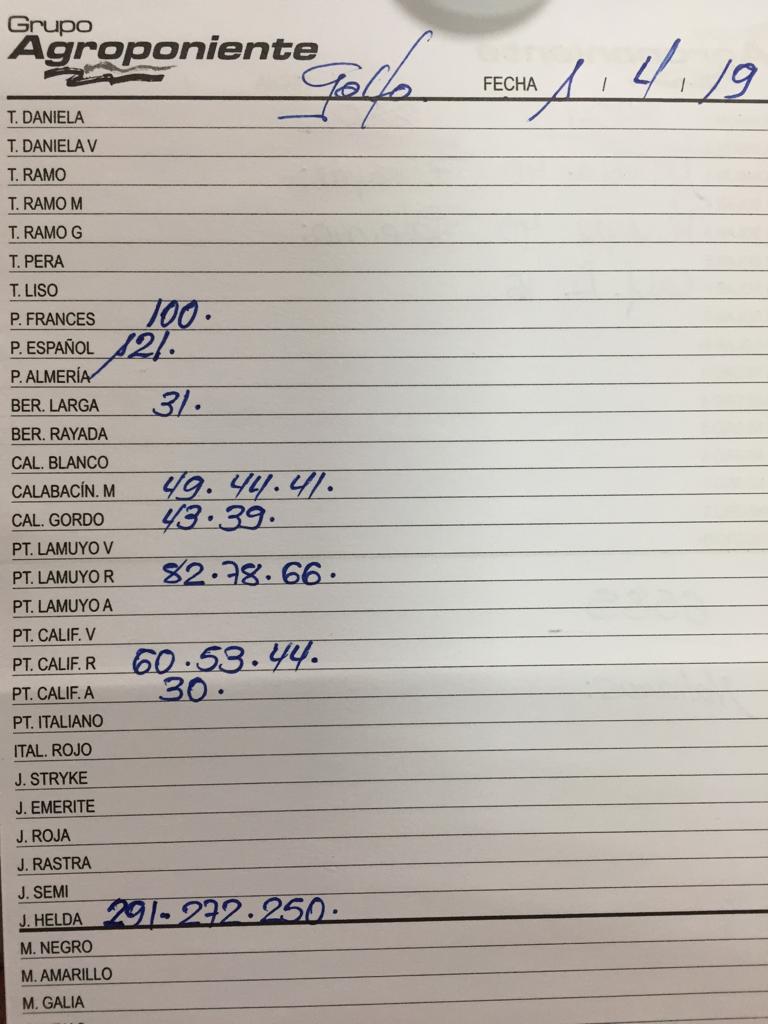 Grupo
Agroponiente
Golfo. FECHA 1 / 4 / 19
T. DANIELA
T. DANIELA V
T. RAMO
T. RAMO M
T. RAMO G
T. PERA
T. LISO
P. FRANCES 100.
P. ESPAÑOL 121.
P. ALMERÍA
BER. LARGA 31.
BER. RAYADA
CAL. BLANCO
CALABACÍN. M 49. 44. 41.
CAL. GORDO 43. 39.
PT. LAMUYO V
PT. LAMUYO R 82. 78. 66.
PT. LAMUYO A
PT. CALIF. V
PT. CALIF. R 60. 53. 44.
PT. CALIF. A 30.
PT. ITALIANO
ITAL. ROJO
J. STRYKE
J. EMERITE
J. ROJA
J. RASTRA
J. SEMI
J. HELDA 291- 272. 250.
M. NEGRO
M. AMARILLO
M. GALIA